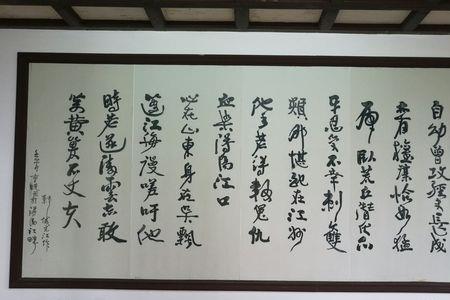 自幼曾攻經史長成
亦有權謀恰如猛
虎臥荒丘潛伏爪
牙忍受不幸刺雙
頰那堪配在江州
他年若得報冤仇
血染潯陽江口
心在山東身在吳飄
蓬江海漫嗟吁他
時若遂凌雲志敢
笑黃巢不丈夫